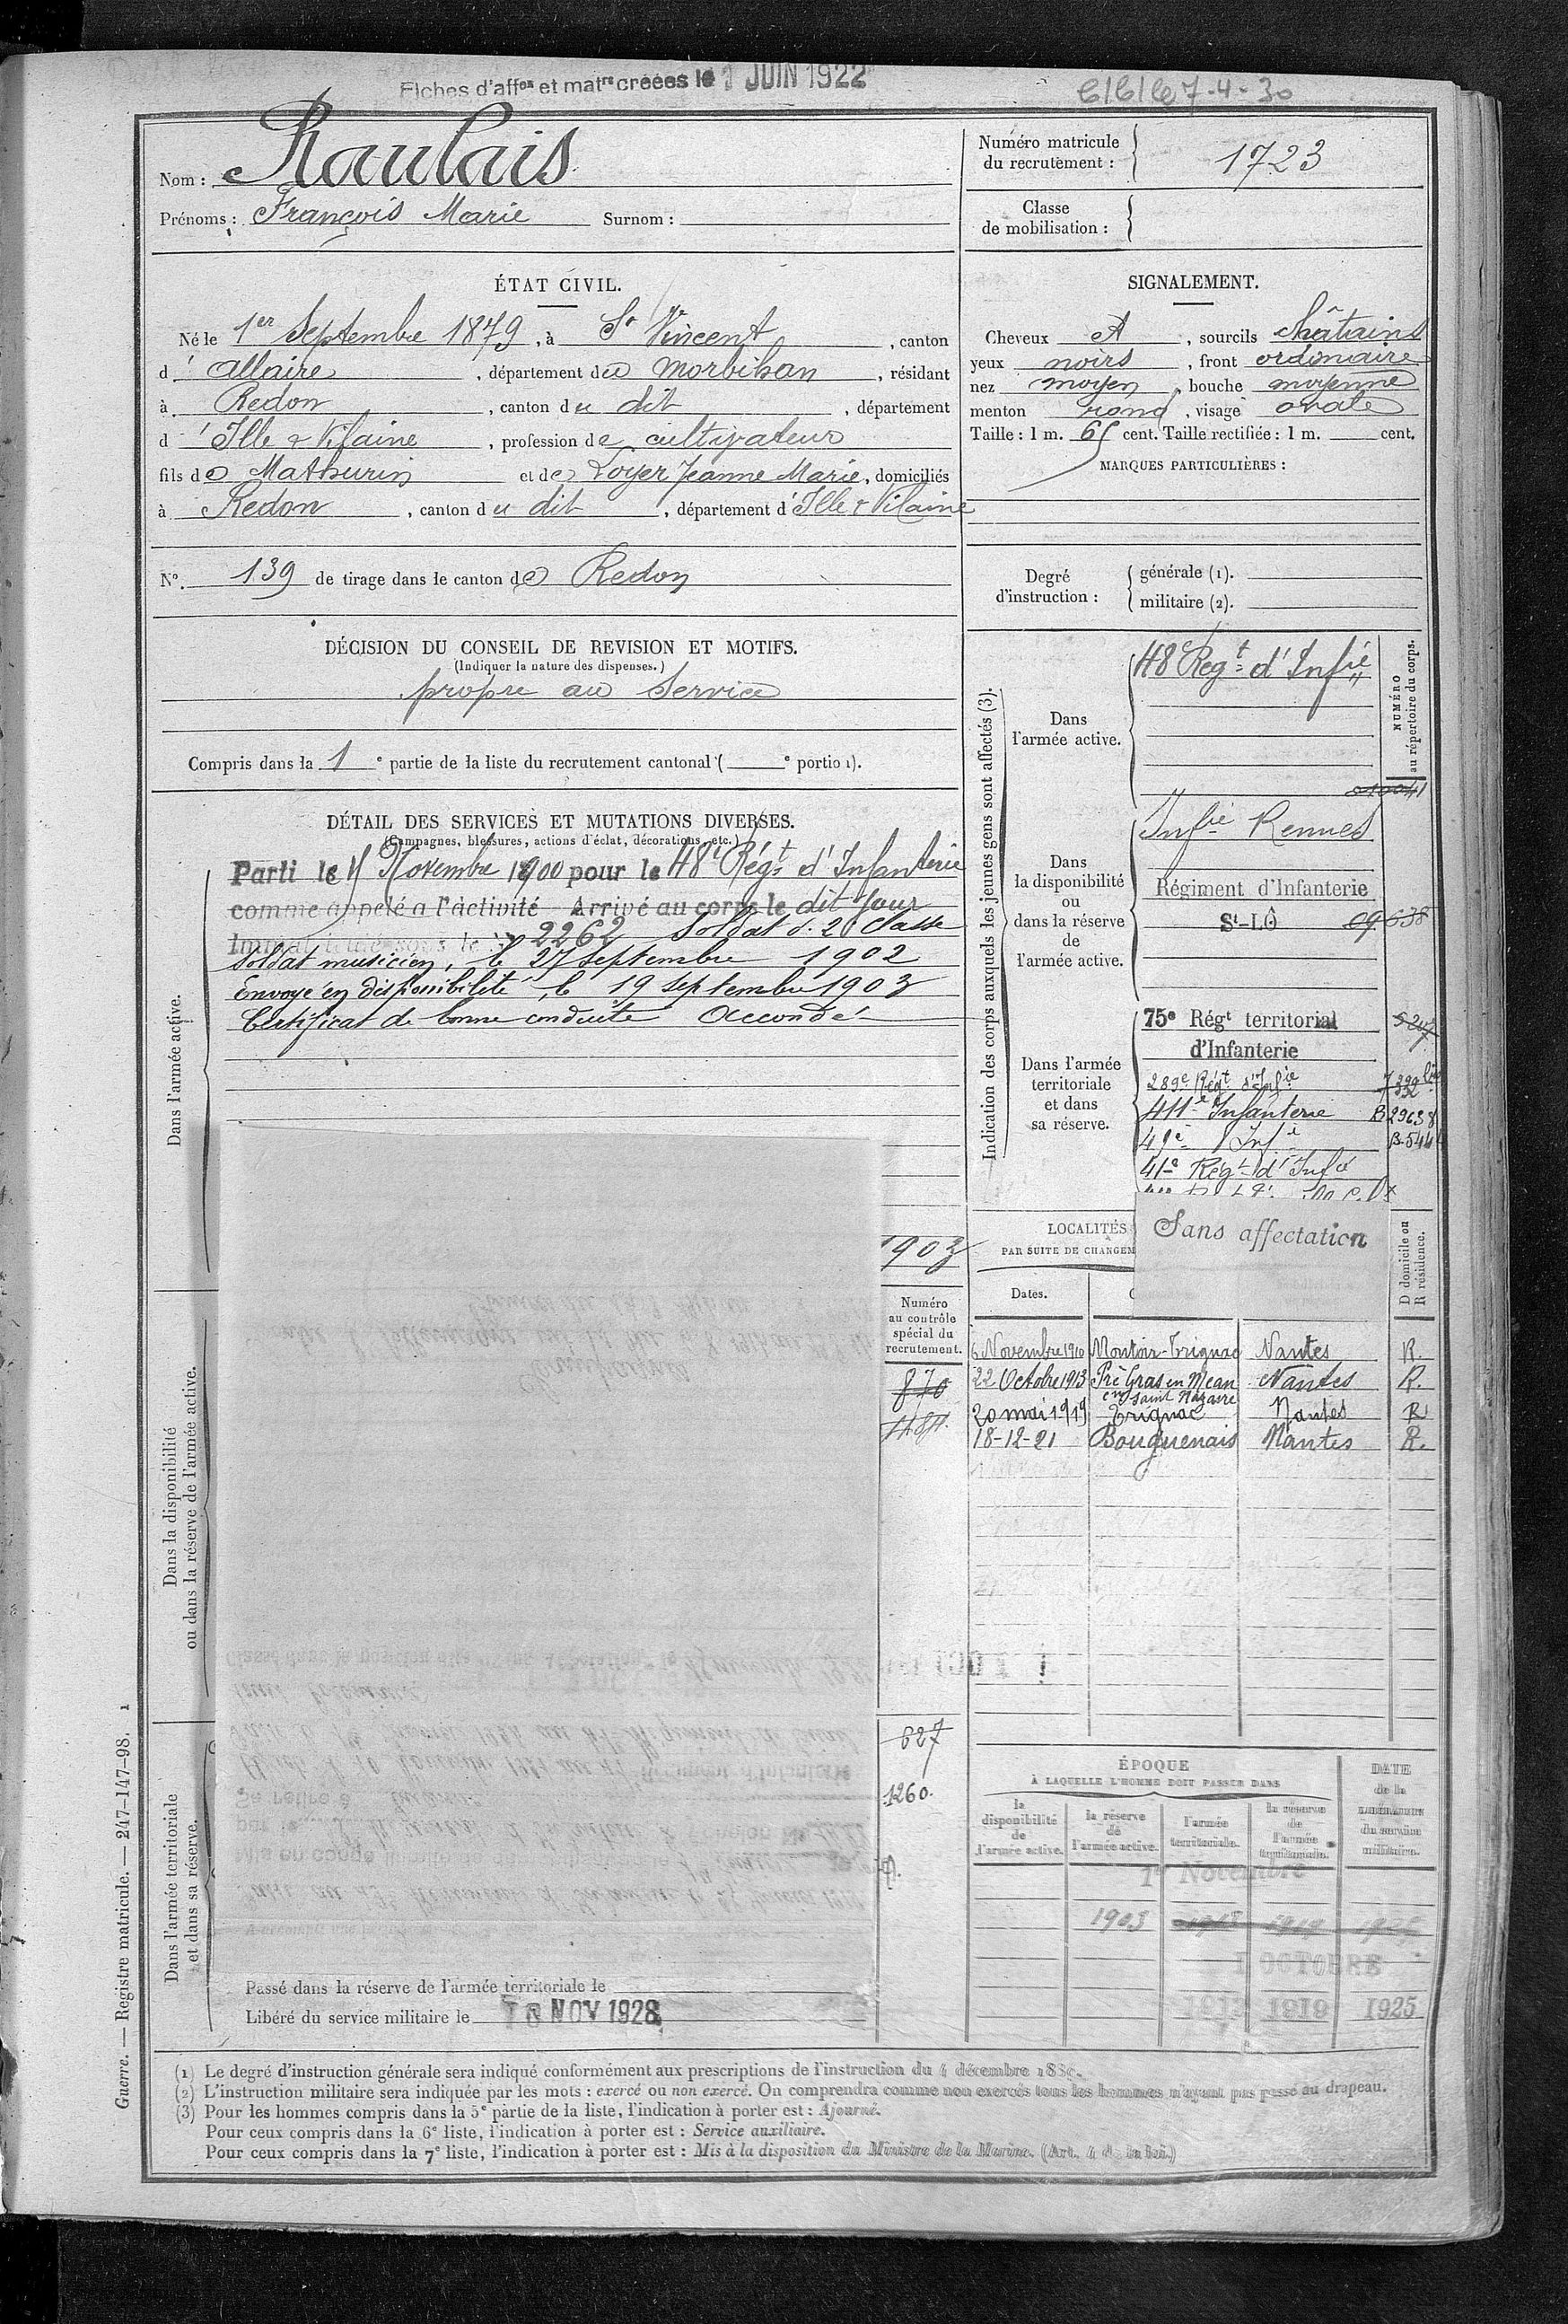 Fiches d'affon et matre créées le 1 JUIN 1922
7-4-30
Nom : Raulais
Prénoms : François Marie Surnom :
Numéro matricule du recrutement : 1723
Classe de mobilisation :
ÉTAT CIVIL.
Né le 1er Septembre 1879, à St Vincent, canton
d'Allaire, département du Morbihan, résidant
à Redon, canton du dit, département
d'Ille & Vilaine, profession de cultivateur
fils de Mathurin et de Loyer Jeanne Marie, domiciliés
à Redon, canton du dit, département d'Ille & Vilaine
N° 139 de tirage dans le canton de Redon
SIGNALEMENT.
Cheveux et, sourcils châtains
yeux noirs, front ordinaire
nez moyen, bouche moyenne
menton rond, visage ovale
Taille : 1 m. 65 cent. Taille rectifiée : 1 m. cent.
MARQUES PARTICULIÈRES :
Degré d'instruction : générale (1).
militaire (2).
DÉCISION DU CONSEIL DE REVISION ET MOTIFS.
(Indiquer la nature des dispenses.)
propre au Service
Compris dans la 1e partie de la liste du recrutement cantonal ( e portion).
DÉTAIL DES SERVICES ET MUTATIONS DIVERSES.
(Campagnes, blessures, actions d'éclat, décorations, etc.)
Dans l'armée active.
Parti le Novembre 1900 pour le 48e Régt d'Infanterie
comme appelé a l'activité Arrivé au corps le dit jour
2262 Soldat de 2e Classe
Soldat musicien, le 27 Septembre 1902
Envoyé en disponibilité, le 19 septembre 1903
Certificat de bonne conduite Accordé
1903
Indication des corps auxquels les jeunes gens sont affectés (3).
NUMÉRO au répertoire du corps.
Dans l'armée active.
48 Regt d'Infie
Dans la disponibilité ou dans la réserve de l'armée active.
Infie Rennes
Régiment d'Infanterie
St-LÔ
Dans l'armée territoriale et dans sa réserve.
75e Régt territorial
d'Infanterie
289e Régt d'Infie
411e Infanterie B29638
49e Infie
41e Régt d'Infie
Sans affectation
LOCALITÉS
PAR SUITE DE CHANGEM
Dates.
D domicile ou R résidence.
6 Novembre 1910 Montoir-Trignac Nantes R.
22 Octobre 1913 Pré Gras en Méan en Saint Nazaire Nantes R.
20 mai 1919 Trignac Nantes R
18-12-21 Bouguenais Nantes R.
Numéro au contrôle spécial du recrutement.
870
627
1260.
Dans la disponibilité ou dans la réserve de l'armée active.
Dans l'armée territoriale et dans sa réserve.
Passé dans la réserve de l'armée territoriale le
Libéré du service militaire le 10 NOV 1928
ÉPOQUE
À LAQUELLE L'HOMME DOIT PASSER DANS
la disponibilité de l'armée active.
la réserve de l'armée active.
l'armée territoriale.
la réserve de l'armée territoriale.
DATE de la LIBÉRATION du service militaire.
1er Novembre
1903
1 OCTOBRE
1913 1919 1925
(1) Le degré d'instruction générale sera indiqué conformément aux prescriptions de l'instruction du 4 décembre
(2) L'instruction militaire sera indiquée par les mots : exercé ou non exercé. On comprendra comme non exercés tous les hommes n'ayant pas passé au drapeau.
(3) Pour les hommes compris dans la 5e partie de la liste, l'indication à porter est : Ajourné.
Pour ceux compris dans la 6e liste, l'indication à porter est : Service auxiliaire.
Pour ceux compris dans la 7e liste, l'indication à porter est : Mis à la disposition du Ministre de la Marine.
Guerre. — Registre matricule. — 247-147-98. 1